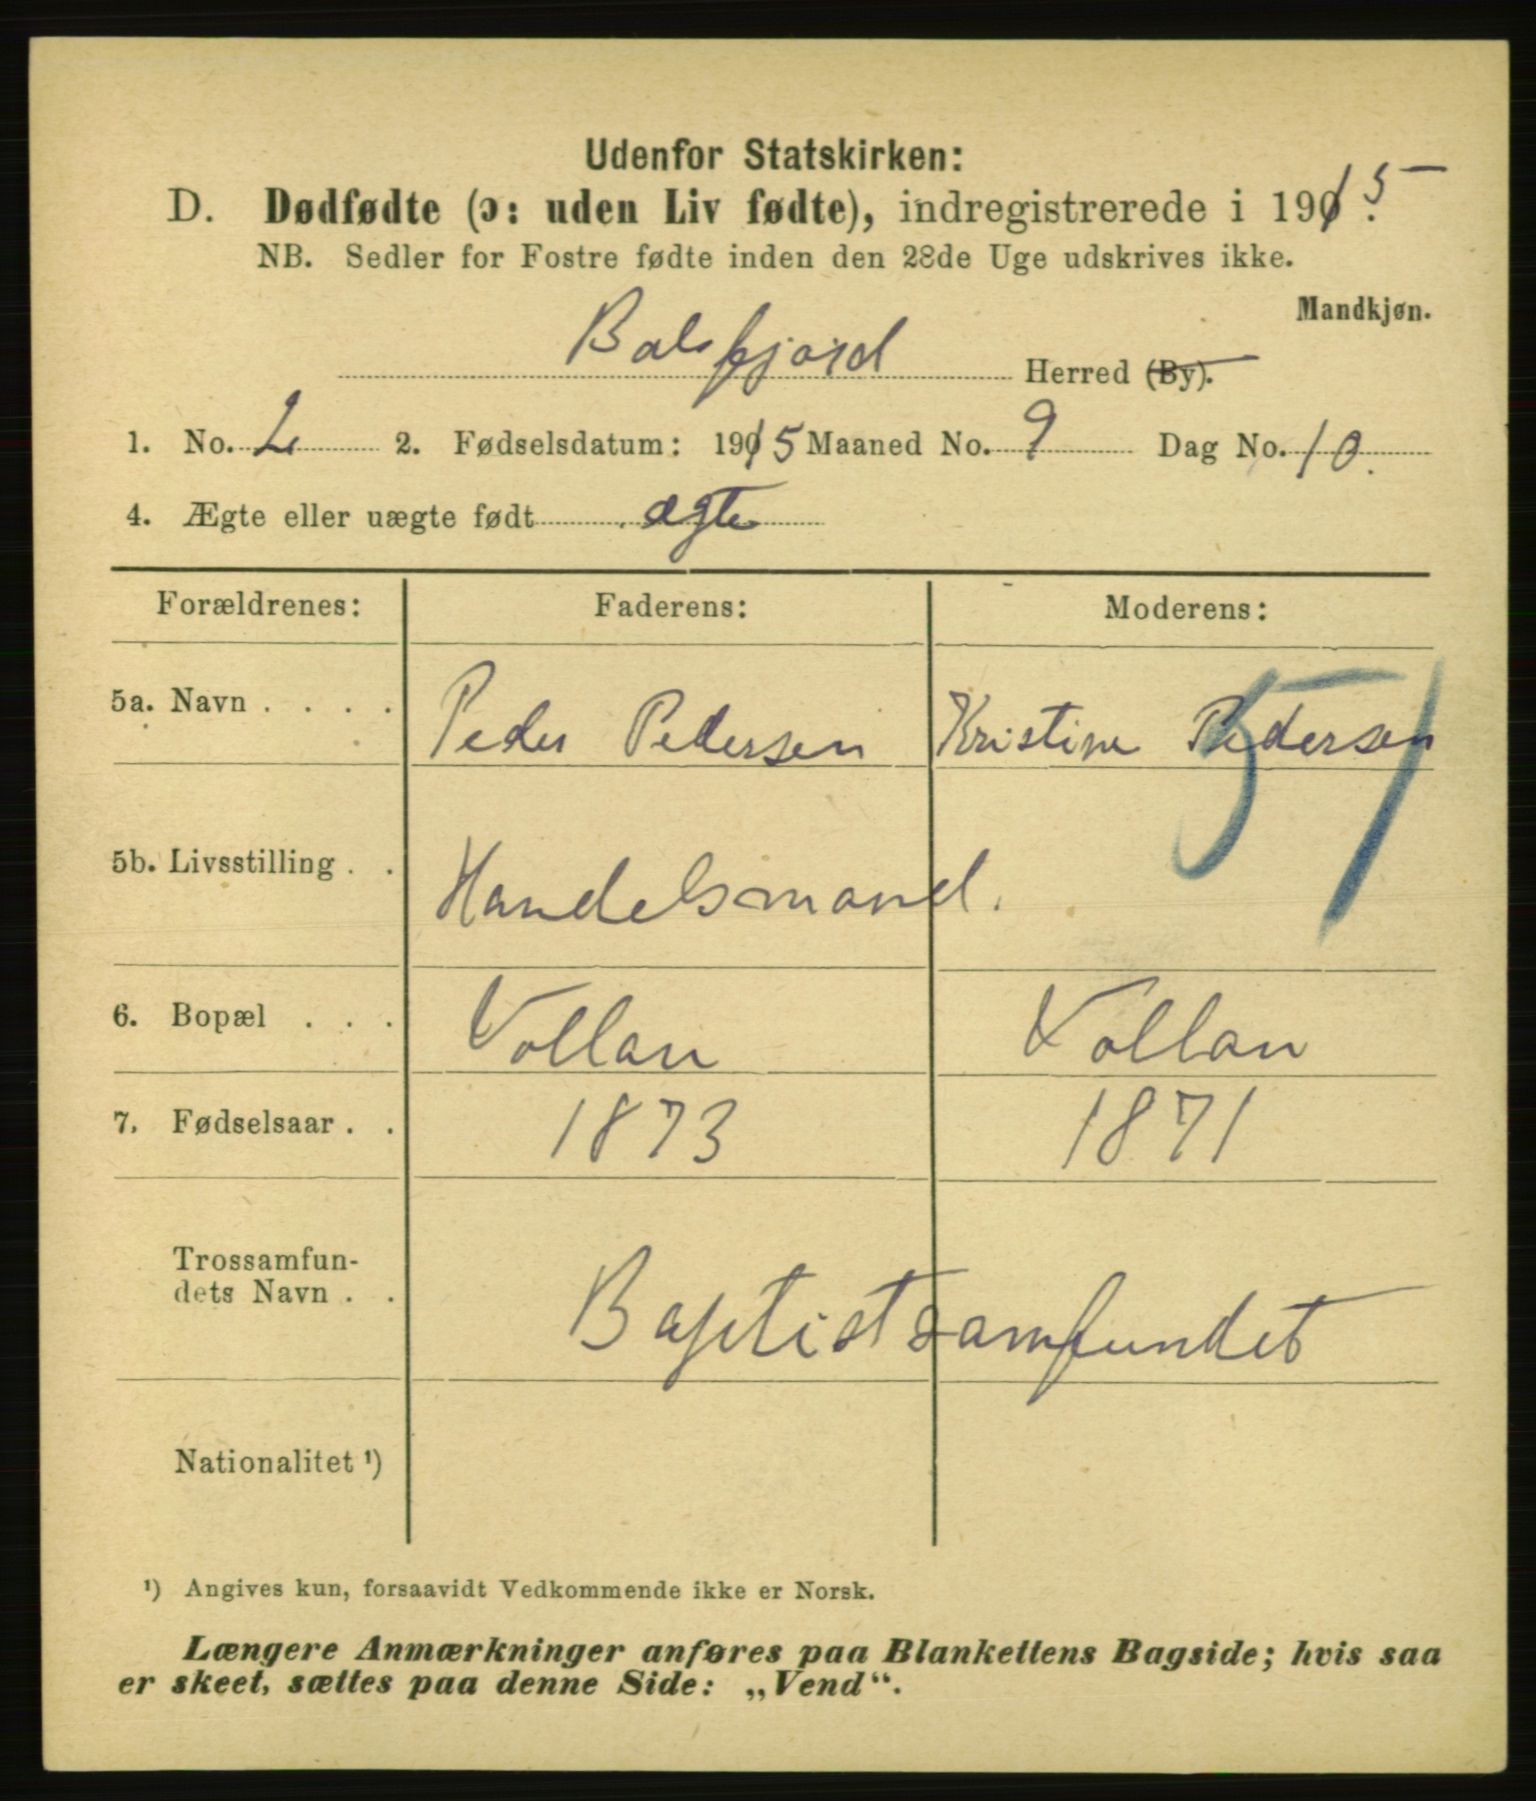 Udenfor Statskirken:
D. Dødfødte (ɔ: uden Liv fødte), indregistrerede i 1915.
NB. Sedler for Fostre fødte inden den 28de Uge udskrives ikke.
Mandkjøn.
Balsfjord Herred (By).
1. No. 2 2. Fødselsdatum: 1915 Maaned No. 9 Dag No. 10.
4. Ægte eller uægte født ægte
Forældrenes: Faderens: Moderens:
5a. Navn . . . . Peder Pedersen Kristine Pedersen
51
5b. Livsstilling . . Handelsmand.
6. Bopæl . . . Vollan Vollan
7. Fødselsaar . . 1873 1871
Trossamfun-
dets Navn . . Baptistsamfundet
Nationalitet ¹)
¹) Angives kun, forsaavidt Vedkommende ikke er Norsk.
Længere Anmærkninger anføres paa Blankettens Bagside; hvis saa
er skeet, sættes paa denne Side: „Vend“.